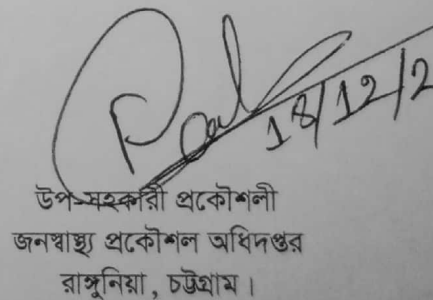 18/12/2
উপ-সহকারী প্রকৌশলী
জনস্বাস্থ্য প্রকৌশল অধিদপ্তর
রাঙ্গুনিয়া, চট্টগ্রাম।